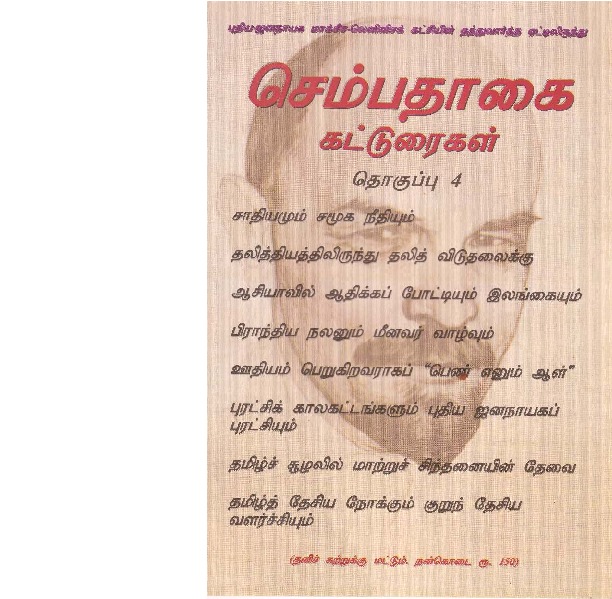 புதிய-ஜனநாயக மாக்சிச-லெனினிசக் கட்சியின் தத்துவார்த்த ஏட்டிலிருந்து
செம்பதாகை
கட்டுரைகள்
தொகுப்பு 4
சாதியமும் சமூக நீதியும்
தலித்தியத்திலிருந்து தலித் விடுதலைக்கு
ஆசியாவில் ஆதிக்கப் போட்டியும் இலங்கையும்
பிராந்திய நலனும் மீனவர் வாழ்வும்
ஊதியம் பெறுகிறவராகப் “பெண் எனும் ஆள்”
புரட்சிக் காலகட்டங்களும் புதிய ஜனநாயகப்
புரட்சியும்
தமிழ்ச் சூழலில் மாற்றுச் சிந்தனையின் தேவை
தமிழ்த் தேசிய நோக்கும் குறுந் தேசிய
வளர்ச்சியும்
(தனிச் சுற்றுக்கு மட்டும். நன்கொடை ரூ. 150)